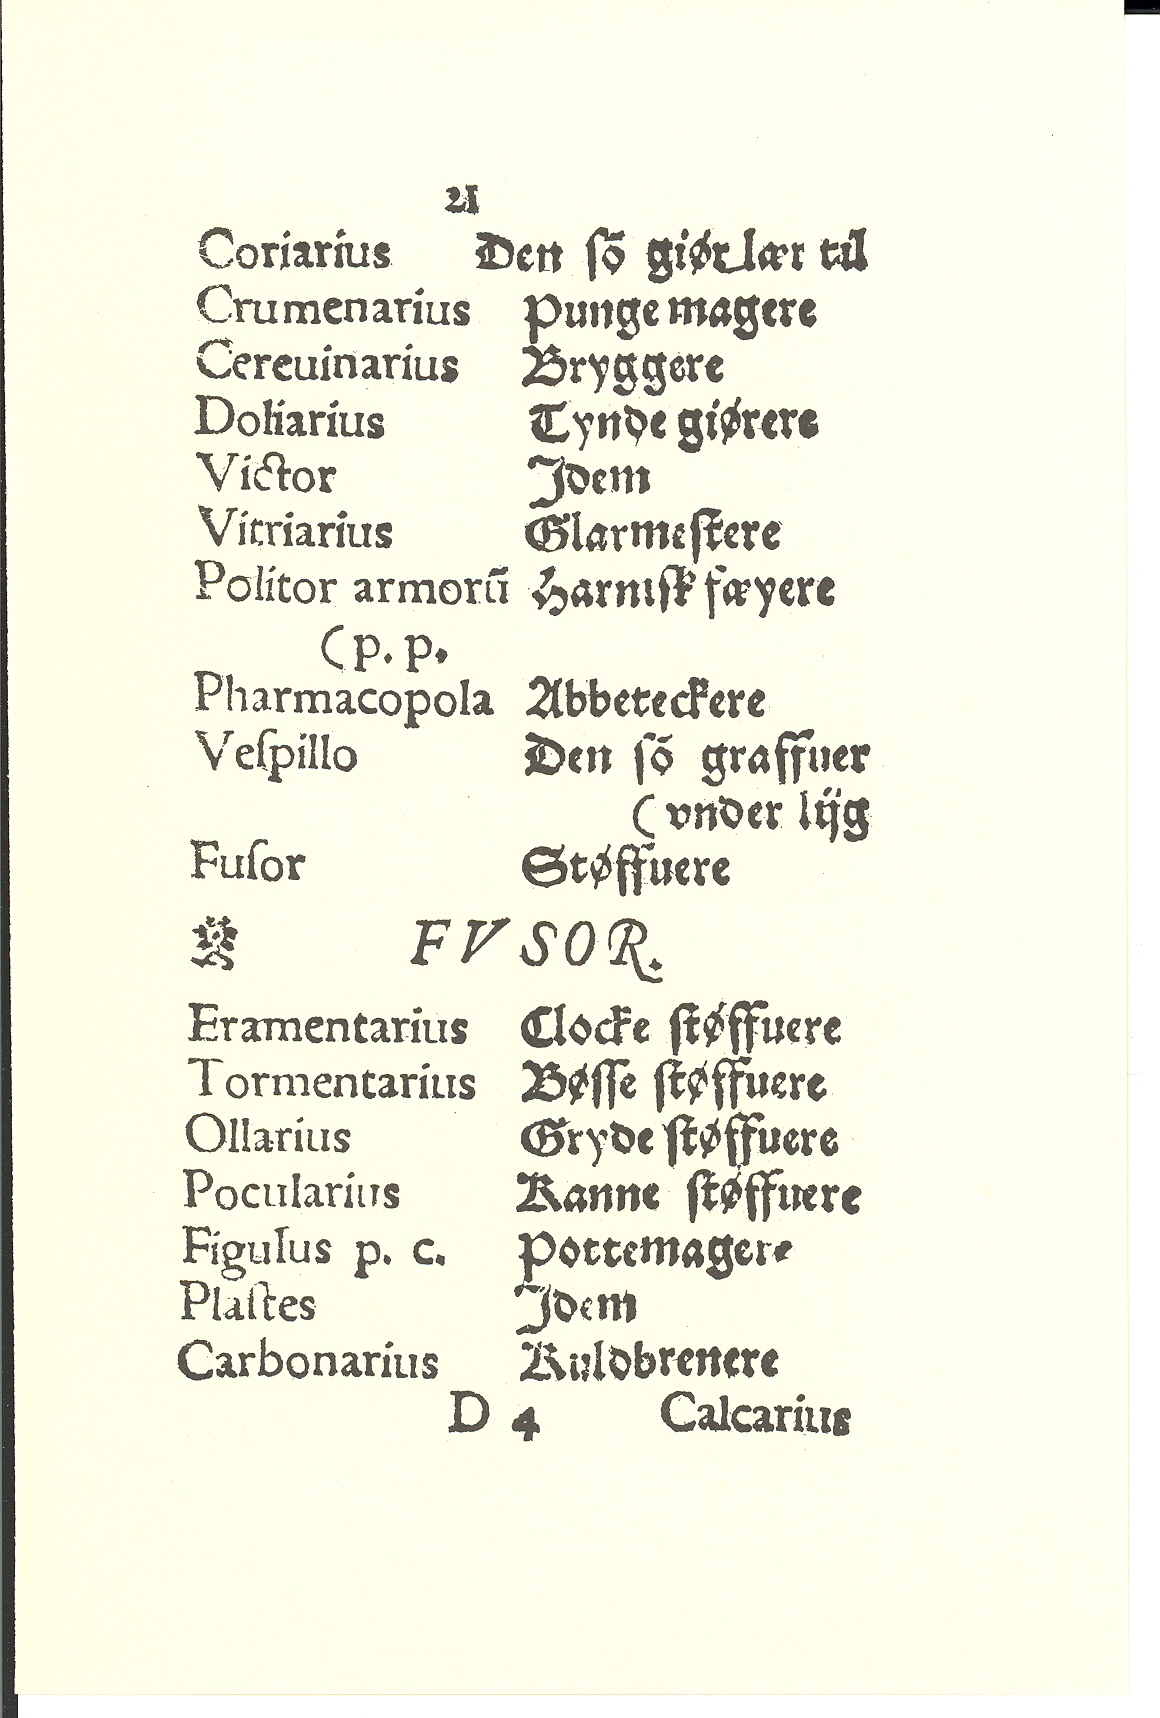 21
Coriarius Den sõ giør lær til
Crumenarius Punge magere
Cereuinarius Bryggere
Doliarius Tynde giørere
Victor Idem
Vitriarius Glarmestere
Politor armorũ Harnisk fæyere
(p. p.
Pharmacopola Abbeteckere
Veſpillo Den ſõ graffuer
(vnder lijg
Fuſor Støffuere
FVSOR.
Eramentarius Clocke ſtøffuere
Tormentarius Bøſſe ſtøffuere
Ollarius Gryde ſtøffuere
Pocularius Kanne ſtøffuere
Figulus p. c. Pottemagere
Plaſtes Idem
Carbonarius Kuldbrenere
D 4 Calcarius